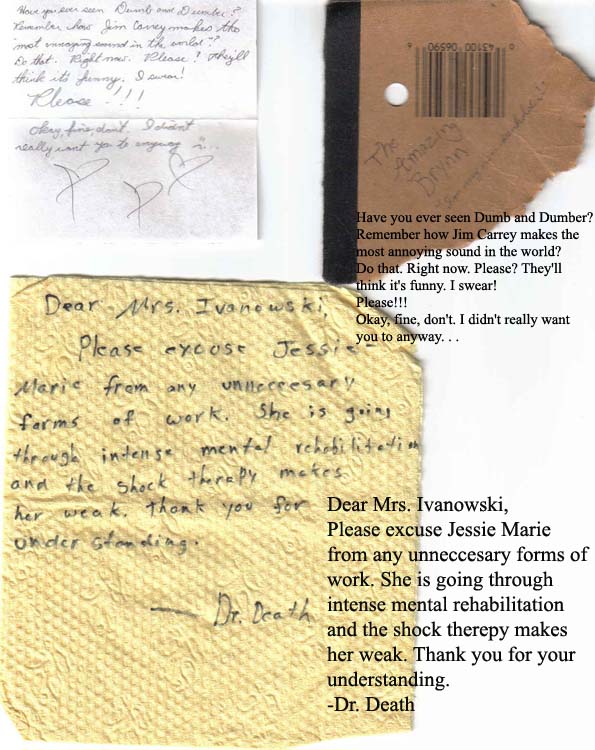 Have you ever seen Dumb and Dumber?
Remember how Jim Carrey makes the
"most annoying sound in the world"?
Do that. Right now. Please? They'll
think its funny. I swear!
Please!!!
Okay, fine, don't. I didn't
really want you to anyway...
6 63100 06590 0
The
Amazing
Brynn
Have you ever seen Dumb and Dumber?
Remember how Jim Carrey makes the
most annoying sound in the world?
Do that. Right now. Please? They'll
think it's funny. I swear!
Please!!!
Okay, fine, don't. I didn't really want
you to anyway. . .
Dear Mrs. Ivanowski,
Please excuse Jessie-
Marie from any unneccesary
forms of work. She is going
through intense mental rehabilitation
and the shock therapy makes
her weak. Thank you for
understanding.
— Dr. Death
Dear Mrs. Ivanowski,
Please excuse Jessie Marie
from any unneccesary forms of
work. She is going through
intense mental rehabilitation
and the shock therepy makes
her weak. Thank you for your
understanding.
-Dr. Death